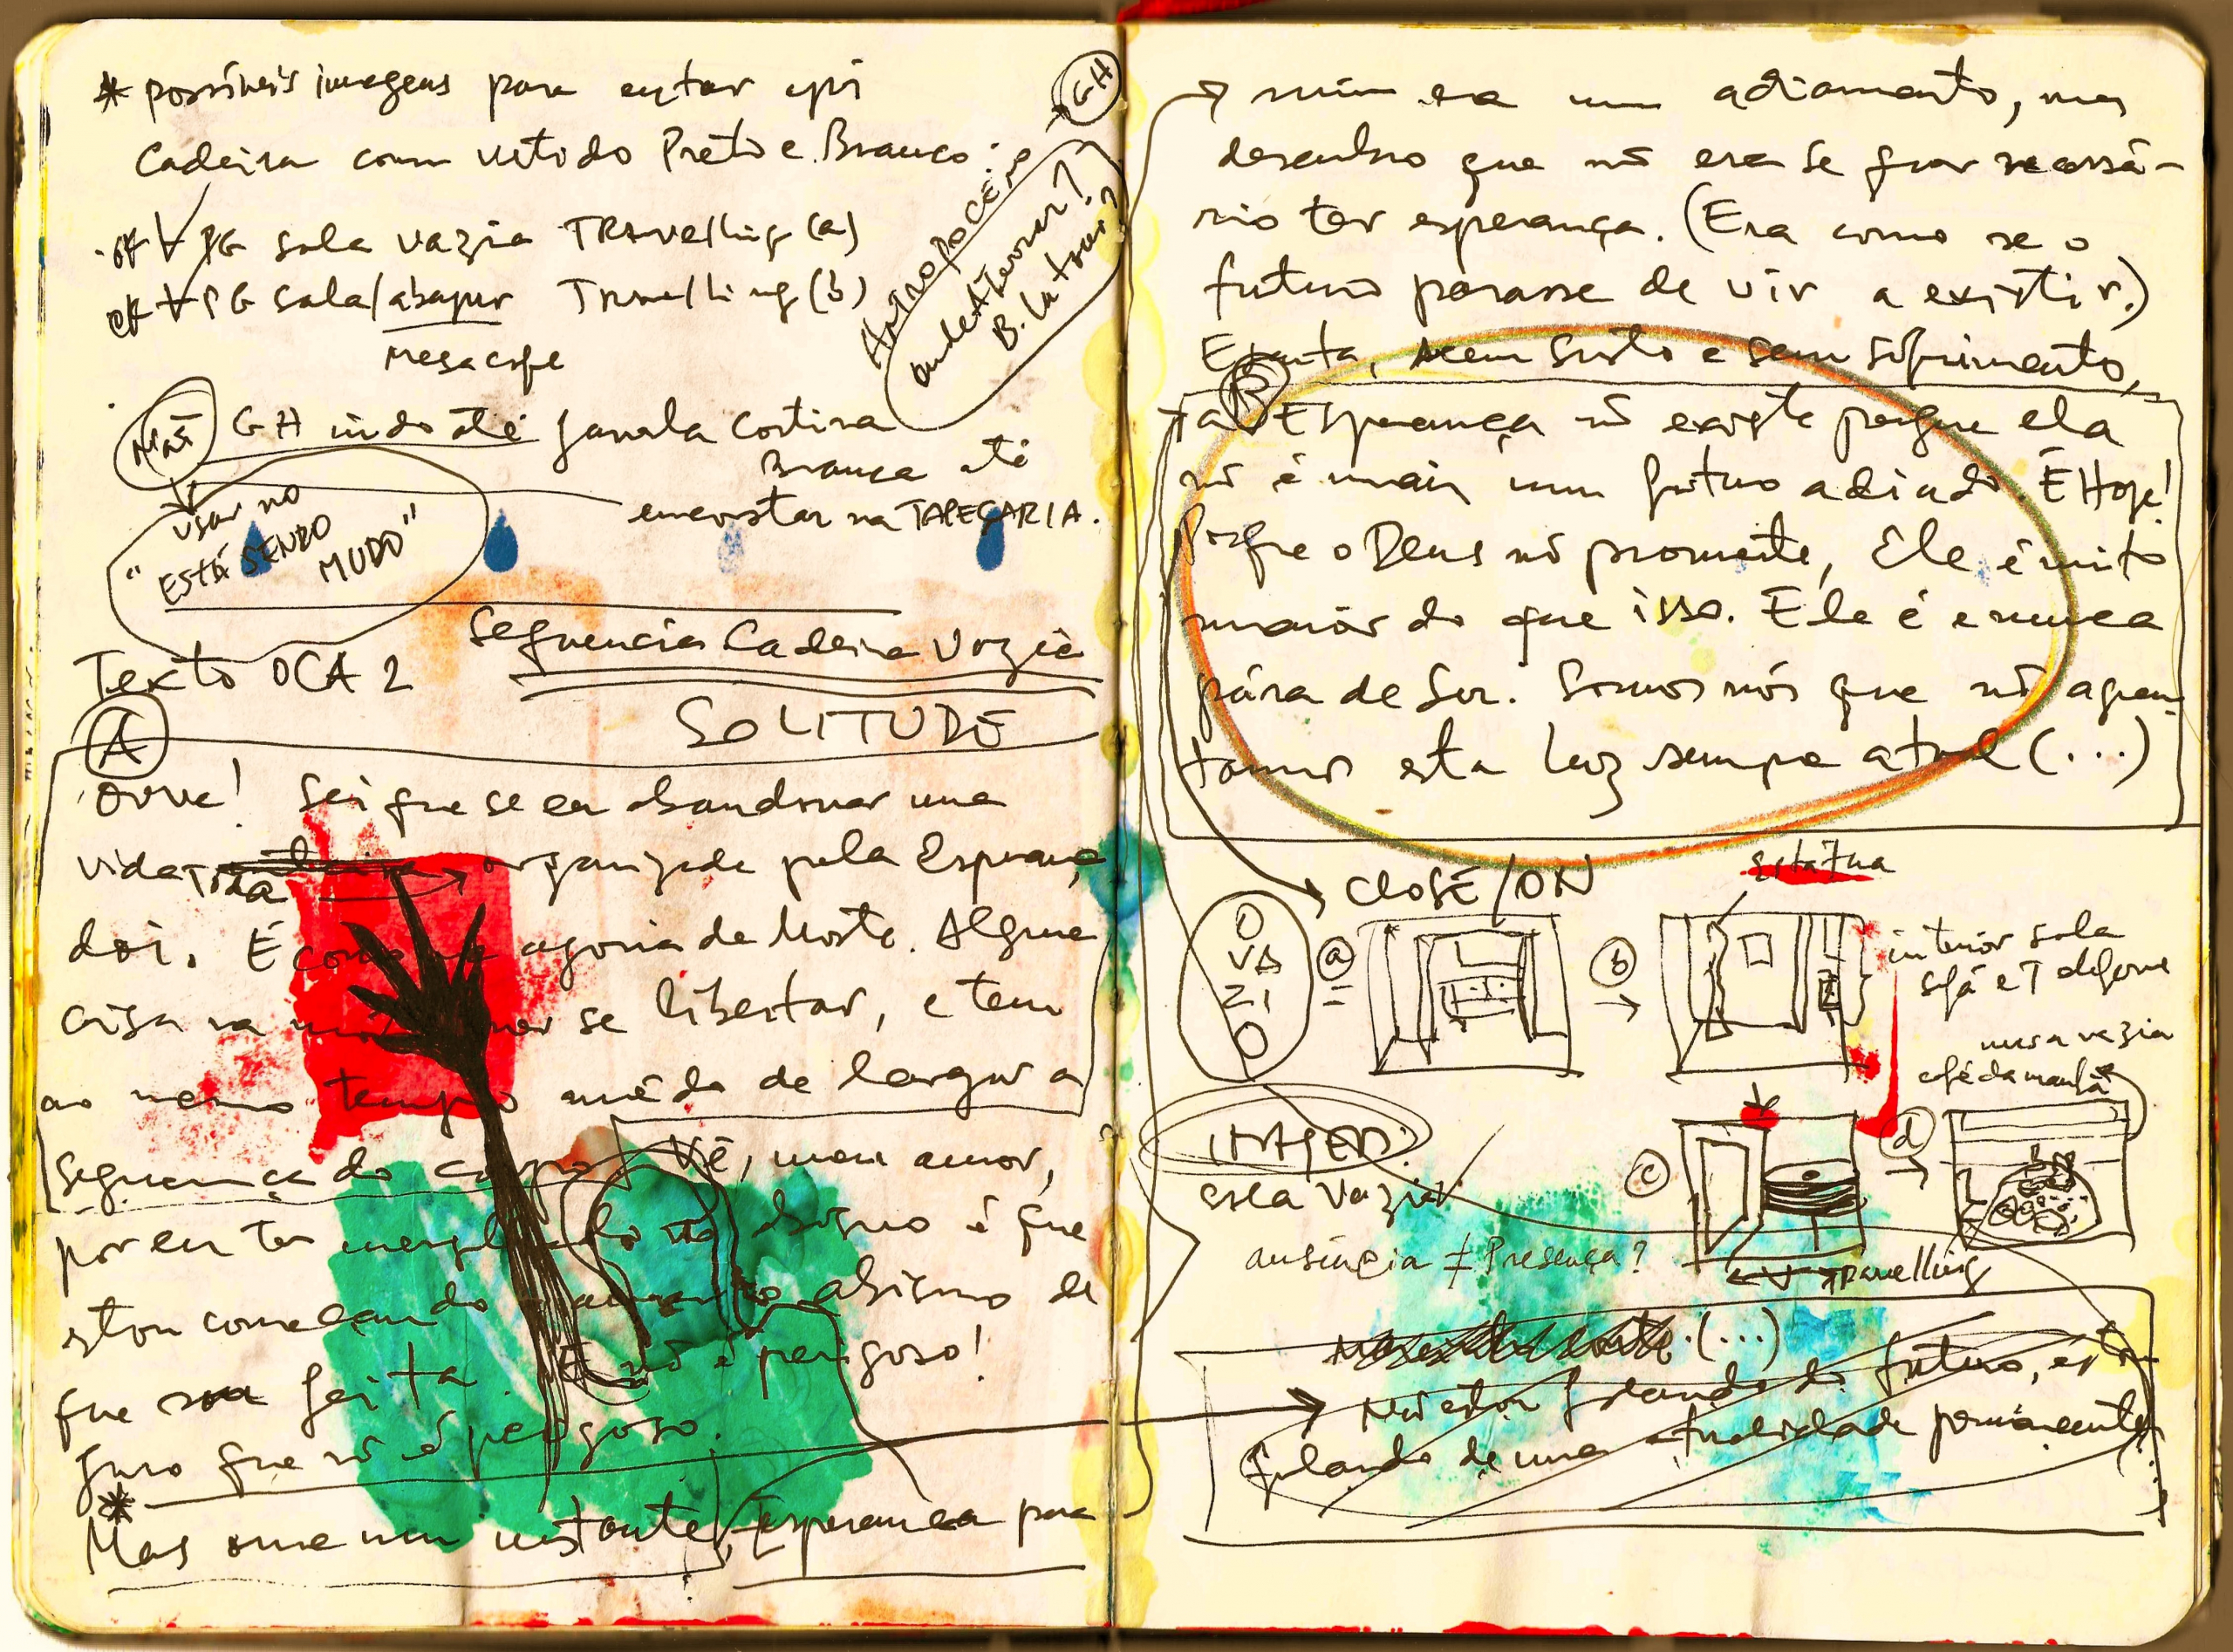 * possíveis imagens para
Cadeira com vestido Preto e Branco:
ok PG sala vazia TRavelling (a)
ok PG sala/abajur Travelling (b)
Mesa café
GH
ANTROPOCENO
onde ATerrar?
B. Latour?
GH indo até janela cortina
Branca até
encostar na TAPEÇARIA.
usar no
"ESTÁ SENDO
MUDO"
Sequencia Cadeira Vazia
Texto OCA 2
SOLITUDE
A
Ouve! Sei que se eu abandonar uma
vida Toda organizada pela Esperança
doi. É como agonia de Morte. Alguma
coisa se libertar, e tem
ao mesmo tempo mêdo de largar a
segurança do corpo. Vê, meu amor,
por eu ter mergulhado no abismo é que
estou começando a amar o abismo de
que sou feita. E nõ é perigoso!
Juro que nõ é perigoso.
*
Mas ouve um instante, Esperança para
mim era um adiamento, mas
descubro que nõ era se quer necessá-
rio ter esperança. (Era como se o
futuro parasse de vir a existir.)
Escuta, sem susto e sem sofrimento,
B
a Esperança nõ existe porque ela
nõ é mais um futuro adiado. É Hoje!
Porque o Deus nõ promete, Ele é mito
maior do que isso. Ele é e nunca
pára de Ser. Somos nós que nõ aguen-
tamos esta luz sempre atual (...)
CLOSE/ON
estátua
O
VA
ZI
O
a =
b →
interior sala
sofá e T
mesa vazia
café da manhã
IMAGEM:
c
d →
sala vazia
ausência ≠ Presença?
Travelling
(...)
Nõ estou falando do futuro, estou
falando de uma atualidade permanente.